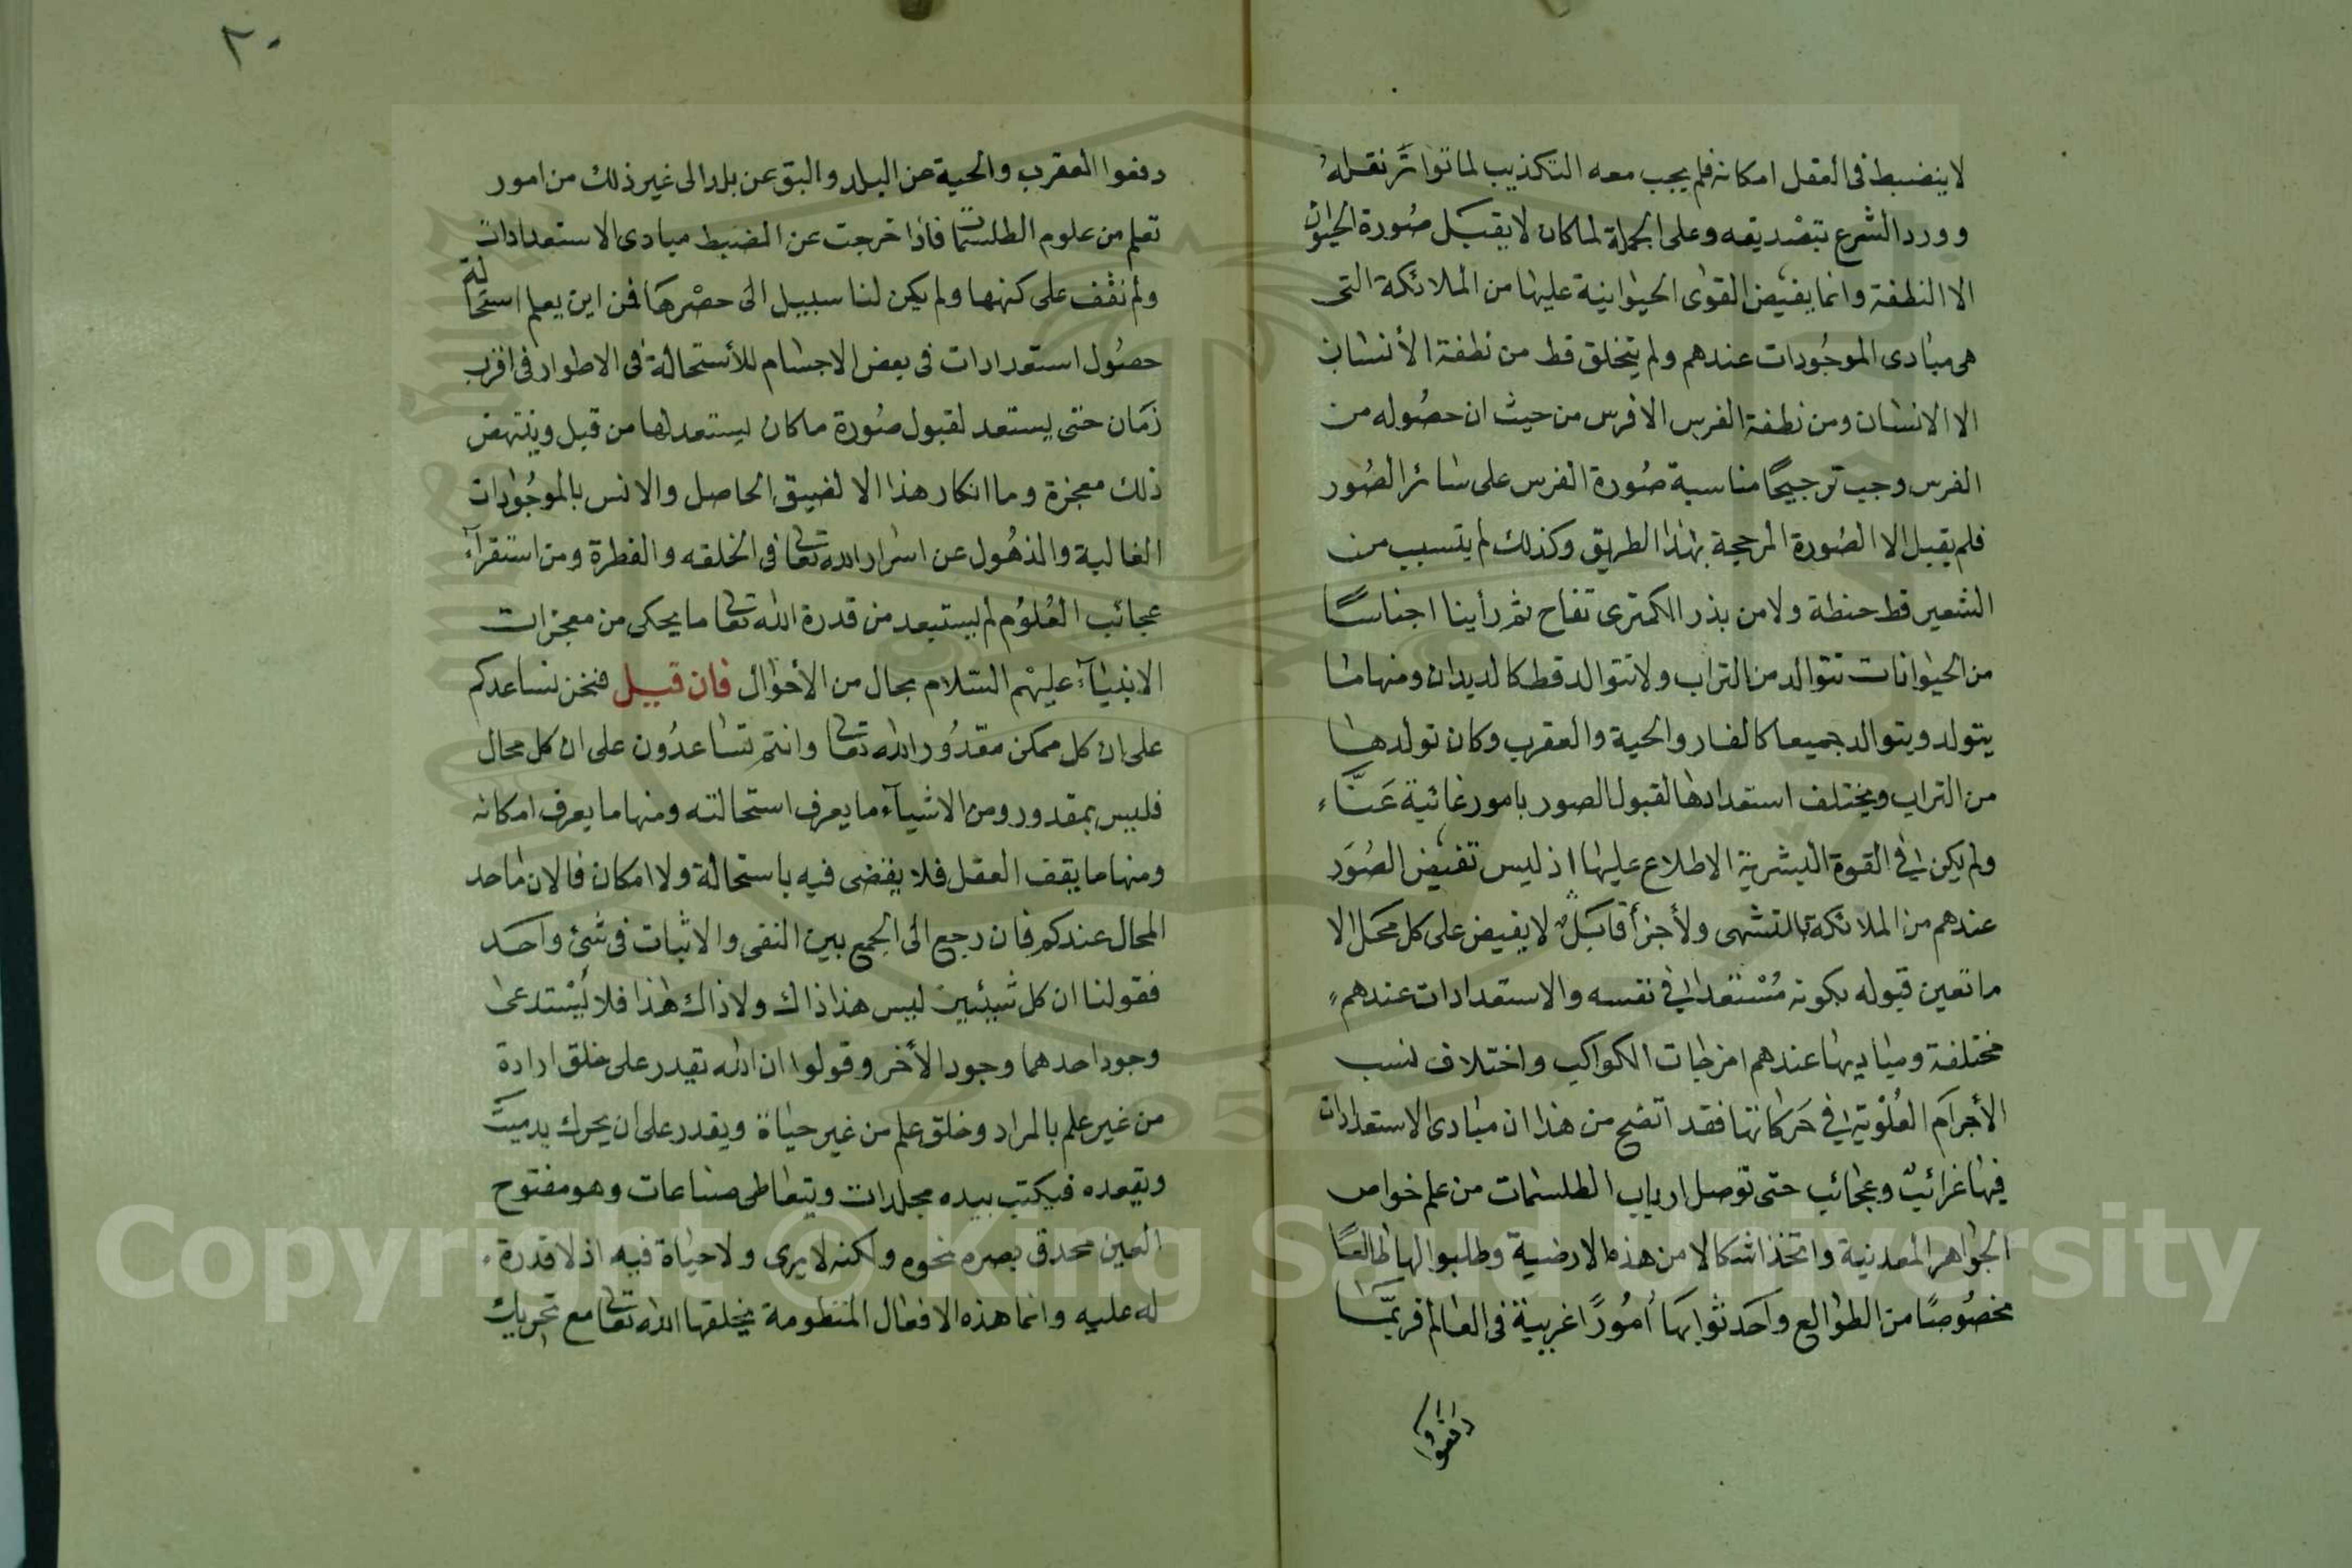 لا ينضبط فى العقل امكانه فلم يجب معه التكذيب لما تواتر نقله
وورد الشرع بتصديقه وعلى الجملة لما كان لا يقبل صورة الحيوان
الا النطفة وانما يفيض القوى الحيوانية عليها من الملائكة التى
هى مبادى الموجودات عندهم ولم يتخلق قط من نطفة الأنسان
الا الانسان ومن نطفة الفرس الا فرس من حيث ان حصوله من
الفرس وجب ترجيحًا مناسبة صورة الفرس على سائر الصور
فلم يقبل الا الصورة المرجحة بهذا الطريق وكذلك لم يتسبب من
الشعير قط حنطة ولا من بذر الكمثرى تفاح ثم رأينا اجناسًا
من الحيوانات تتوالد من التراب ولا تتوالد قط كالديدان ومنها ما
يتولد ويتوالد جميعا كالفار والحية والعقرب وكان تولدها
من التراب ويختلف استعدادها لقبول الصور بامور غائبة عنّا
ولم يكن فى القوة البشرية الاطلاع عليها اذ ليس تفيض الصور
عندهم من الملائكة بالتشهى ولا جزافا بل لا يفيض على كل محل الا
ما تعين قبوله بكونه مستعدا فى نفسه والاستعدادات عندهم
مختلفة ومباديها عندهم امزجات الكواكب واختلاف نسب
الأجرام العلوية فى حركاتها فقد اتضح من هذا ان مبادى الاستعدادات
فيها غرائب وعجائب حتى توصل ارباب الطلسمات من علم خواص
الجواهر المعدنية واتخذ اشكالا من هذه الارضية وطلبوا لها طالعًا
مخصوصًا من الطوالع واحدثوا بها أمورًا غريبة فى العالم فربمّا
دفعوا
٢٠
دفعوا العقرب والحية عن البلد والبق عن بلد الى غير ذلك من امور
تعلم من علوم الطلسمات فاذا خرجت عن الضبط مبادى الاستعدادات
ولم نقف على كنهها ولم يكن لنا سبيل الى حصرها فمن اين يعلم استحالة
حصول استعدادات فى بعض الاجسام للأستحالة فى الاطوار فى اقرب
زمان حتى يستعد لقبول صورة ما كان يستعد لها من قبل وينتهض
ذلك معجزة وما انكار هذا الا لضيق الحاصل والانس بالموجودات
الغالبة والذهول عن اسرار الله تعالى فى الخلقه والفطرة ومن استقرآء
عجائب العلوم لم يستبعد من قدرة الله تعالى ما يحكى من معجزات
الانبيآء عليهم السلام بحال من الأحوال فان قيل فنحن نساعدكم
على ان كل ممكن مقدور لله تعالى وانتم تساعدون على ان كل محال
فليس بمقدور ومن الاشيآء ما يعرف استحالته ومنها ما يعرف امكانه
ومنها ما يقف العقل فلا يقضى فيه باستحالة ولا امكان فالان ما حد
المحال عندكم فان رجع الى الجمع بين النفى والاثبات فى شئ واحد
فقولنا ان كل شيئين ليس هذا ذاك ولا ذاك هذا فلا يستدعى
وجود احدهما وجود الأخر وقولوا ان الله يقدر على خلق ارادة
من غير علم بالمراد وخلق علم من غير حياة ويقدر على ان يحرك يد ميت
ويقعده فيكتب بيده مجلدات ويتعاطى صناعات وهو مفتوح
العين محدق بصره نحوه ولكنه لا يرى ولا حياة فيه اذ لا قدرة
له عليه وانما هذه الافعال المنظومة يخلقها الله تعالى مع تحريك
Copyright © King Saud University